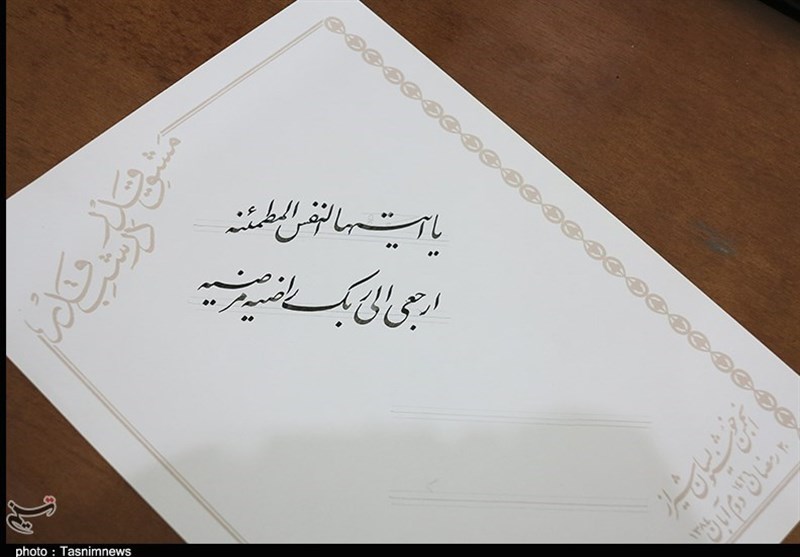 یا ایتها النفس المطمئنه
ارجعی الی ربک راضیه مرضیه
مشق قلم
در شب قدر
انجمن خوشنویسان شیراز
۲۰ رمضان
دوم آبان ۱۳۸۴
تسنیم
photo : Tasnimnews